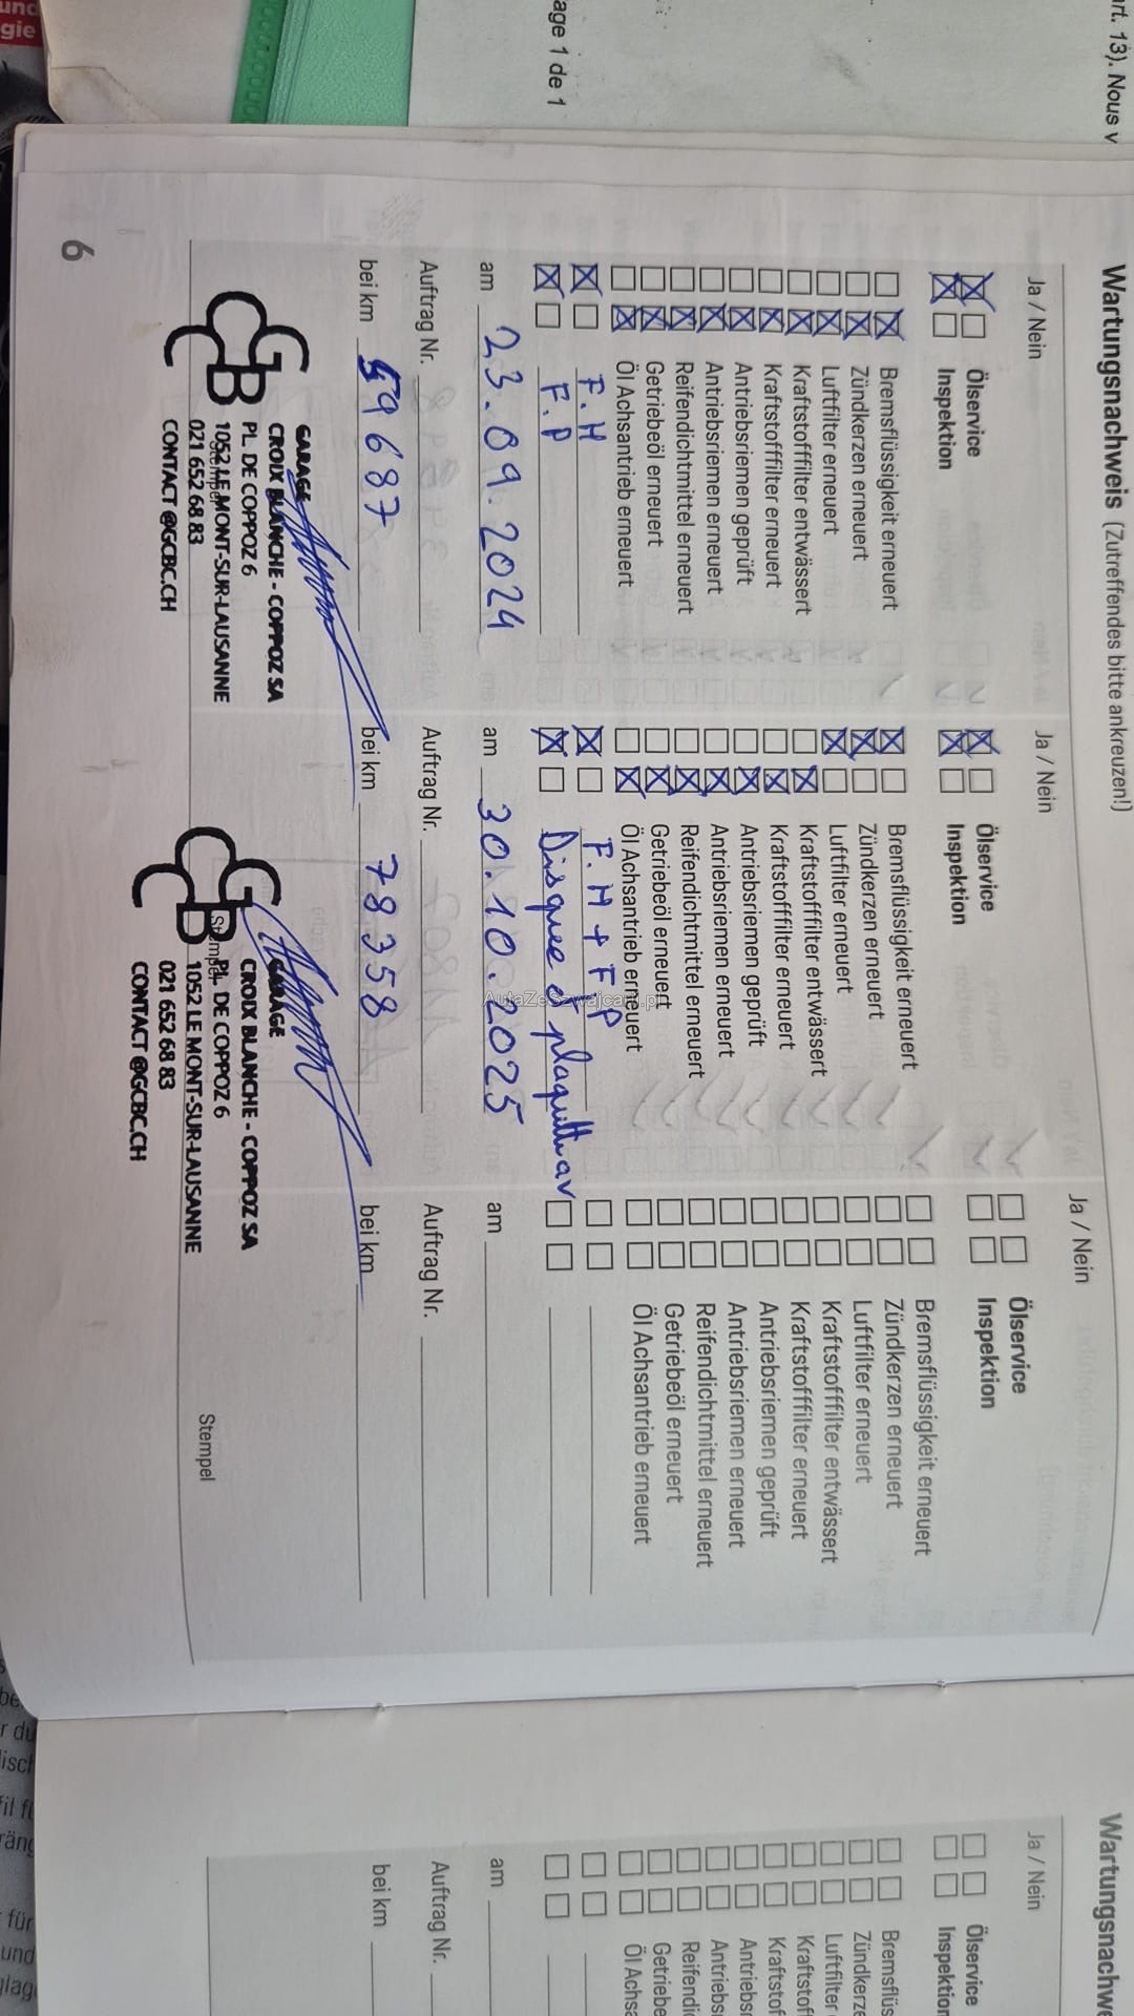 und
gie
age 1 de 1
art. 13). Nous v
Wartungsnachweis (Zutreffendes bitte ankreuzen!)
Ja / Nein
Ölservice
Inspektion
Bremsflüssigkeit erneuert
Zündkerzen erneuert
Luftfilter erneuert
Kraftstofffilter entwässert
Kraftstofffilter erneuert
Antriebsriemen geprüft
Antriebsriemen erneuert
Reifendichtmittel erneuert
Getriebeöl erneuert
Öl Achsantrieb erneuert
F.H
F.P
am 23.09.2024
Auftrag Nr.
bei km 59687
GARAGE
CROIX BLANCHE - COPPOZ SA
PL. DE COPPOZ 6
1052 LE MONT-SUR-LAUSANNE
021 652 68 83
CONTACT @GCBC.CH
Stempel
GCBC
Ja / Nein
Ölservice
Inspektion
Bremsflüssigkeit erneuert
Zündkerzen erneuert
Luftfilter erneuert
Kraftstofffilter entwässert
Kraftstofffilter erneuert
Antriebsriemen geprüft
Antriebsriemen erneuert
Reifendichtmittel erneuert
Getriebeöl erneuert
Öl Achsantrieb erneuert
F.H + F.P
Disque et plaquette av
am 30.10.2025
Auftrag Nr.
bei km 78358
GARAGE
CROIX BLANCHE - COPPOZ SA
PL. DE COPPOZ 6
1052 LE MONT-SUR-LAUSANNE
021 652 68 83
CONTACT @GCBC.CH
Stempel
GCBC
Ja / Nein
Ölservice
Inspektion
Bremsflüssigkeit erneuert
Zündkerzen erneuert
Luftfilter erneuert
Kraftstofffilter entwässert
Kraftstofffilter erneuert
Antriebsriemen geprüft
Antriebsriemen erneuert
Reifendichtmittel erneuert
Getriebeöl erneuert
Öl Achsantrieb erneuert
am
Auftrag Nr.
bei km
Stempel
6
AutaZeSzwajcarii.pl
Wartungsnachwe
Ja / Nein
Ölservice
Inspektion
Bremsflüs
Zündkerze
Luftfilter
Kraftstoff
Kraftstof
Antriebsr
Antriebsr
Reifendic
Getriebe
Öl Achsa
am
Auftrag Nr.
bei km